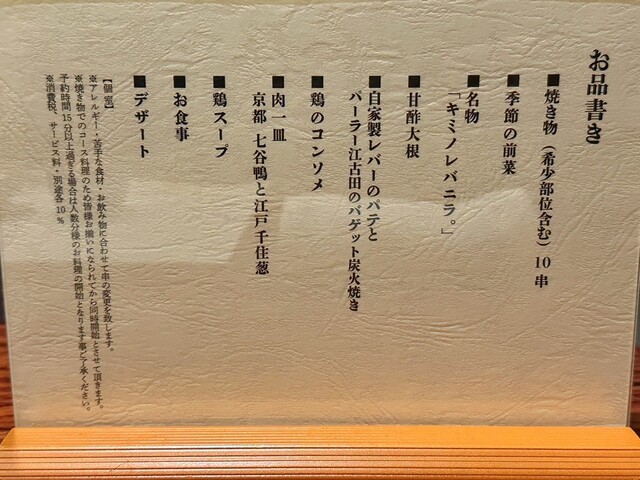 お品書き
■焼き物（希少部位含む）10串
■季節の前菜
■名物
「キミノレバニラ。」
■甘酢大根
■自家製レバーのパテと
パーラー江古田のバゲット炭火焼き
■鶏のコンソメ
■肉一皿
京都 七谷鴨と江戸千住葱
■鶏スープ
■お食事
■デザート
【個室】
※アレルギー・苦手な食材・お飲み物に合わせて串の変更を致します。
※焼き物でのコース料理のため皆様お揃いになられてから同時開始とさせて頂きます。
予約時間15分以上過ぎる場合は人数分様のお料理の開始となります事ご了承ください。
※消費税 サービス料・別途各10％